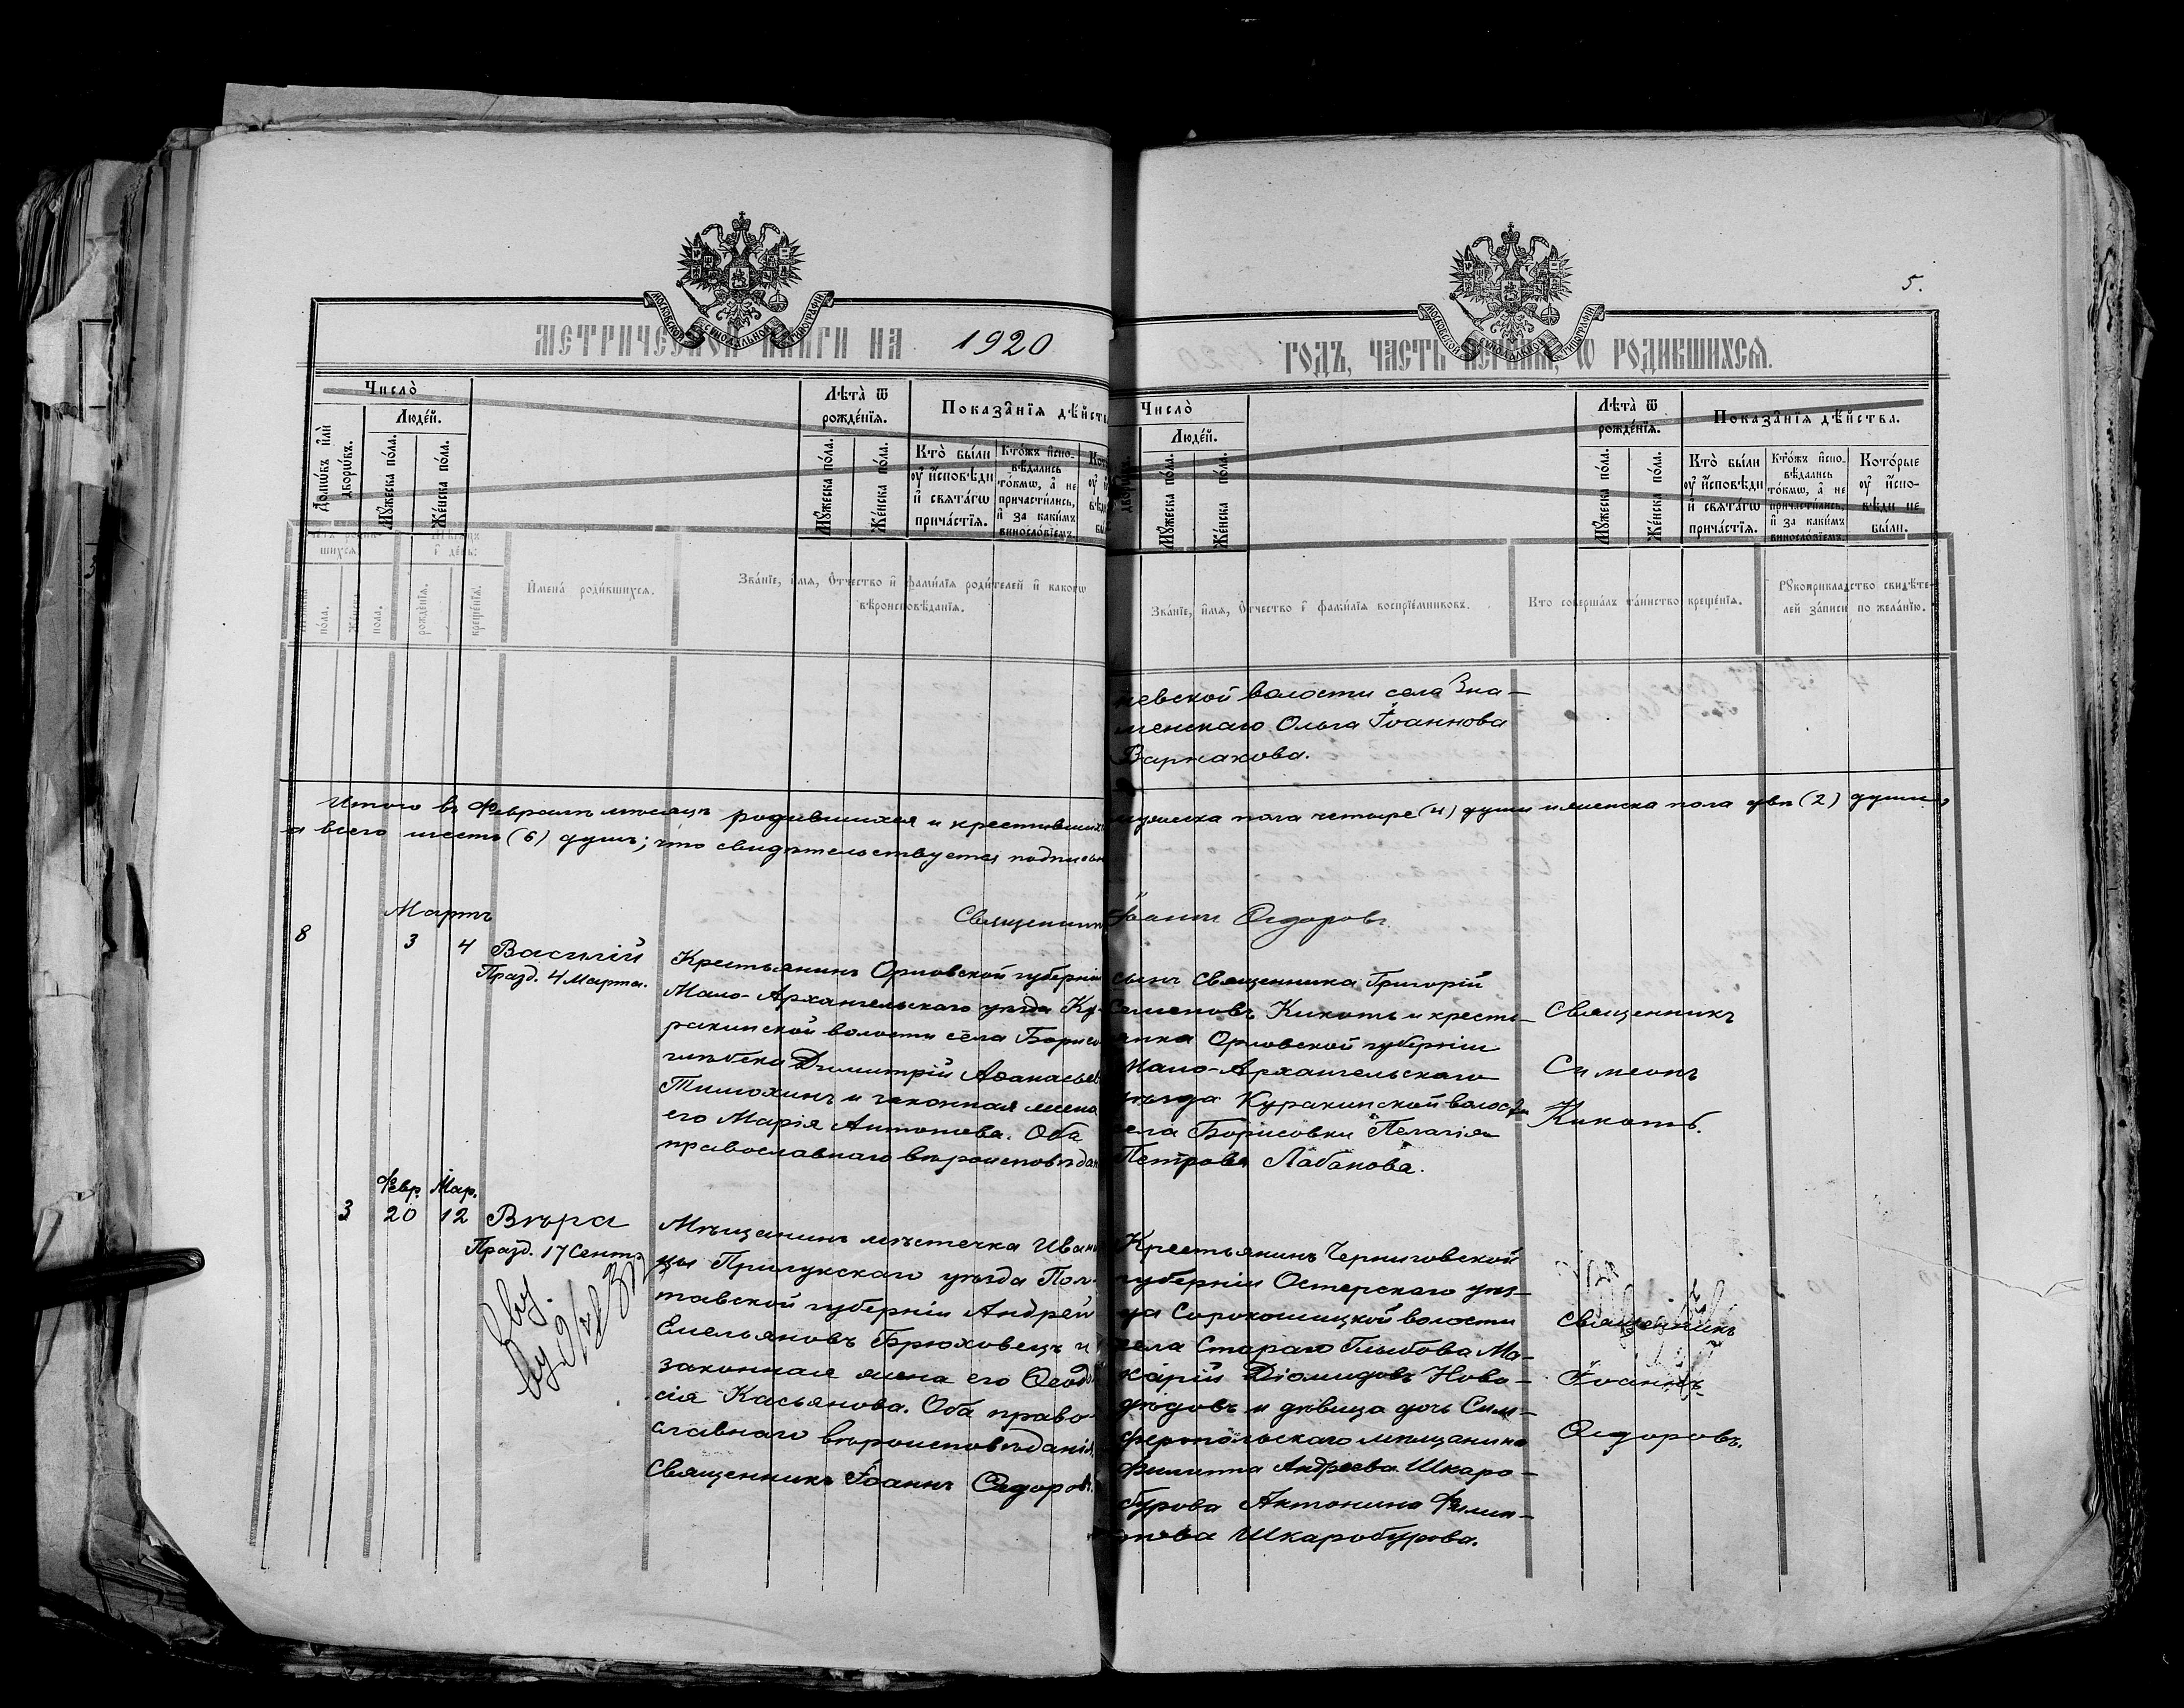 5.
МОСКОВСКОЙ СѴНОДАЛЬНОЙ ТИПОГРАФІИ
МОСКОВСКОЙ СѴНОДАЛЬНОЙ ТИПОГРАФІИ
МЕТРИЧЕСКОЙ КНИГИ НА 1920
ГОДЪ, ЧАСТЬ ПЕРВАЯ, Ѡ РОДИВШИХСЯ.
Число̀
Людéй.
Домѡ́въ и҆лѝ дворѡ́въ.
Мꙋ́жеска по́ла.
Же́нска по́ла.
Лѣта̀ ѿ рожде́нїѧ.
Мꙋ́жеска по́ла.
Же́нска по́ла.
Показа̂нїѧ дѣ́йства
Кто̀ бы́ли
ᲂу҆ и҆сповѣ́ди
и҆ свѧта́гѡ
прича́стїѧ.
Кто́жъ и҆спо-
вѣ́дались
то́кмѡ, а҆ не
причасти́лись,
и҆ за каки́мъ
винослѡ́вїемъ.
Число̀
Людéй.
Мꙋ́жеска по́ла.
Же́нска по́ла.
Лѣта̀ ѿ рожде́нїѧ.
Мꙋ́жеска по́ла.
Же́нска по́ла.
Показа̂нїѧ дѣ́йства.
Кто̀ бы́ли
ᲂу҆ и҆сповѣ́ди
и҆ свѧта́гѡ
прича́стїѧ.
Кто́жъ и҆спо-
вѣ́дались
то́кмѡ, а҆ не
причасти́лись,
и҆ за каки́мъ
винослѡ́вїемъ.
Кото́рые
ᲂу҆ и҆спо-
вѣ́ди не
бы́ли.
пола.
пола.
рожде́нїѧ.
креще́нїѧ.
И҆мена̀ роди́вшихсѧ.
Зва́нїе, и҆́мѧ, ѻ҆́тчество и҆ фами́лїѧ роди́телей и҆ како́гѡ
вѣроисповѣ́данїѧ.
Зва́нїе, и҆́мѧ, ѻ҆́тчество и҆ фами́лїѧ воспрїе́мниковъ.
Кто соверша́лъ та́инство креще́нїѧ.
Рꙋкоприкла́дство свидѣ́те-
лей за́писи по жела́нїю.
невской волости села Зна-
менскаго Ольга Іоаннова
Варнакова.
Итого въ Февралѣ мѣсяцѣ родившихся и крестившихся мужеска пола четыре (4) души и женска пола двѣ (2) души,
а всего шесть (6) душъ; что свидѣтельствуется подписью
Священникъ Іоаннъ Сидоровъ.
Мартъ
8 3 4 Василій
Празд. 4 Марта.
Крестьянинъ Орловской губерніи
Мало-Архангельскаго уѣзда Ку-
ракинской волости села Борисо-
глѣбска Димитрій Аѳанасьевъ
Тимохинъ и законная жена
его Марія Антонова. Оба
православнаго вѣроисповѣдан
сынъ Священника Григорій
Семеновъ Кикоть и кресть-
янка Орловской губерніи
Мало-Архангельскаго
уѣзда Куракинской волости
села Борисовки Пелагія
Петрова Лабанова.
Священникъ
Симеонъ
Кикоть.
Февр. Мар.
3 20 12 Вѣра
Празд. 17 Сентр
Мѣщанинъ мѣстечка Ивани
цы Прилукскаго уѣзда Пол-
тавской губерніи Андрей
Емельяновъ Брюховецъ и
законная жена его Ѳеодо
сія Касьянова. Оба право-
славнаго вѣроисповѣданія.
Священникъ Іоаннъ Сидоровъ.
Крестьянинъ Черниговской
губерніи Остерскаго уѣз-
да Сорокошицкой волости
села Стараго Глыбова Ма-
карій Діомидовъ Ново-
дѣдовъ и дѣвица дочь Сим-
феропольскаго мѣщанина
Филиппа Андреева Шкаро-
бурова Антонина Филип-
пова Шкаробурова.
Священникъ
Іоаннъ
Сидоровъ.